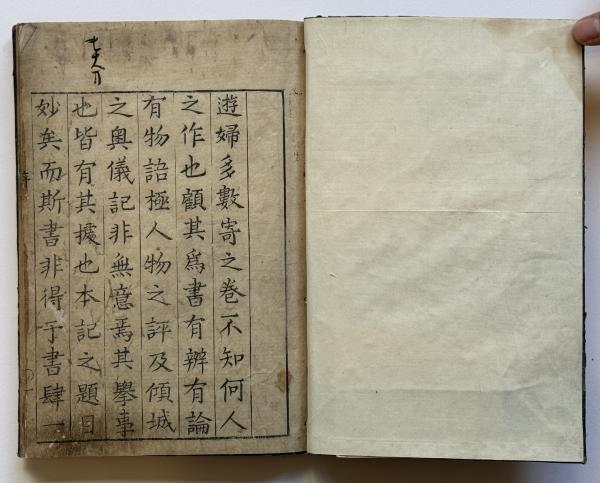 遊婦多數寄之卷不知何人
之作也顧其爲書有辨有論
有物語極人物之評及傾城
之奥儀記非無意焉其擧事
也皆有其據也本記之題目
妙矣而斯書非得于書肆一